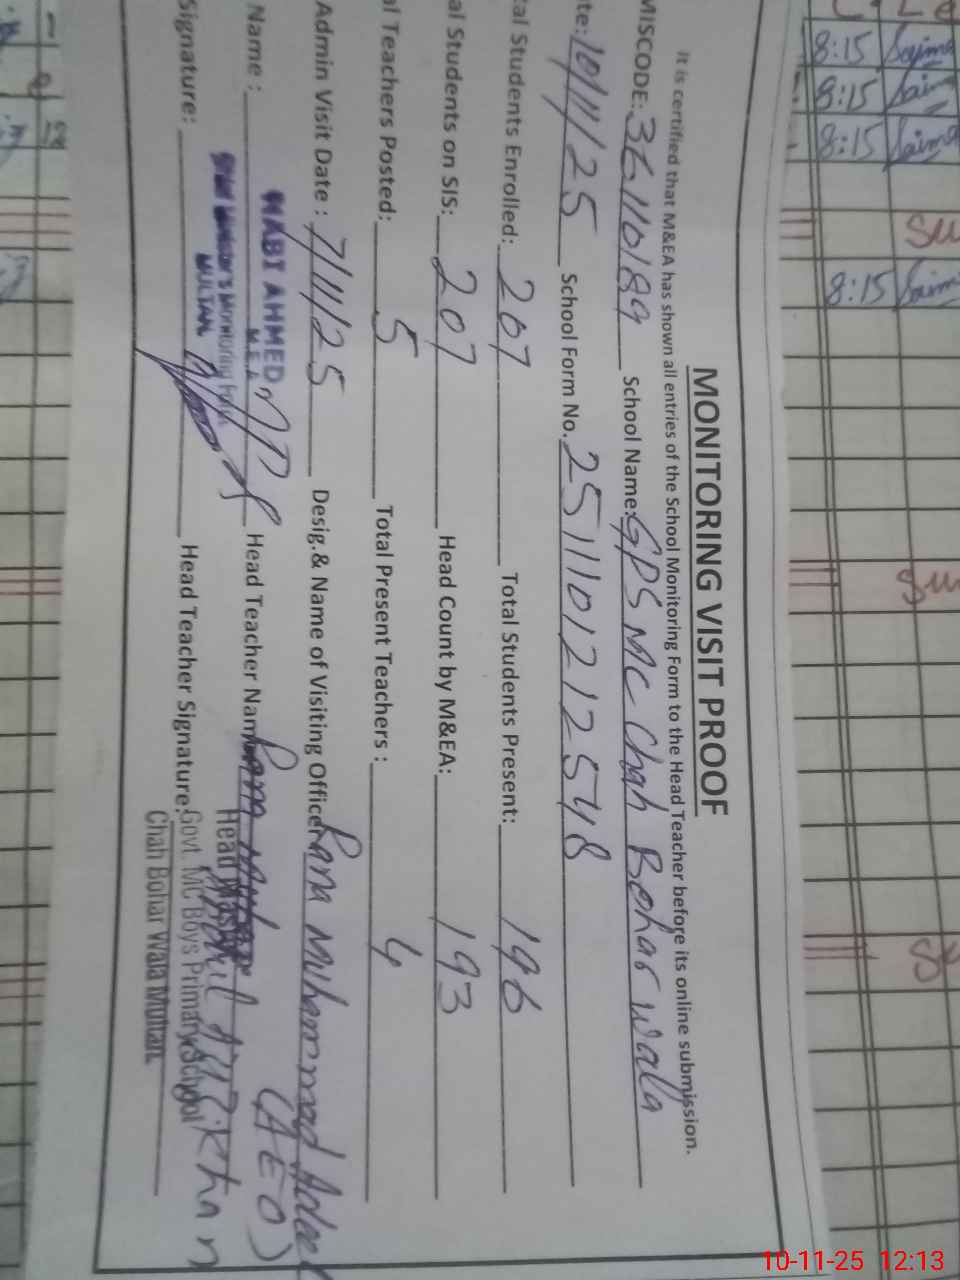 MONITORING VISIT PROOF
It is certified that M&EA has shown all entries of the School Monitoring Form to the Head Teacher before its online submission.
MISCODE: 36110189 School Name: GPS MC Chah Bohar wala
te: 10/11/25 School Form No. 2511101212548
tal Students Enrolled: 207 Total Students Present: 196
al Students on SIS: 207 Head Count by M&EA: 193
al Teachers Posted: 5 Total Present Teachers : 4
Admin Visit Date : 7/11/25 Desig.& Name of Visiting Officer Rana Muhammad Adeel
(AEO)
Name : NABI AHMED Head Teacher Name
M.E.A
Monitoring Force
MULTAN
Signature: Head Teacher Signature:
Head Master
Govt. MC Boys Primary School
Chah Bohar Wala Multan.
8:15 Saima
8:15 Saima
8:15 Saima
8:15 Saima
10-11-25 12:13